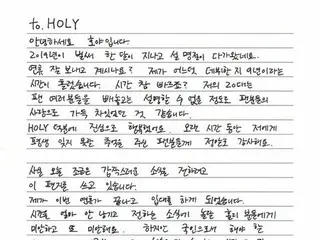 to. HOLY
안녕하세요 호야입니다.
2019년이 벌써 한 달이 지나고 설 명절이 다가왔네요..
연휴 잘 보내고 계시나요? 제가 어느덧 데뷔한 지 9년이라는
시간이 흘렀습니다. 시간 참 빠르죠? 저의 20대는
팬 여러분들을 빼놓고는 설명할 수 없을 정도로 팬분들의
사랑으로 가득 차있었던 것 같습니다.
HOLY 덕분에 진심으로 행복했어요.. 오랜 시간 동안 저에게
평생 잊지 못할 추억을 주신 팬분들께 정말로 감사해요..
사실 오늘 조금은 갑작스러운 소식을 전하려고
이 편지를 쓰고 있습니다.
제가 이번 연휴가 끝나고 입대를 하게 되었습니다.
시간을 얼마 안 남기고 전하는 소식에 놀랄 홀리 분들에게
미안하고 또 미안해요.. 하지만 국민으로서 해야 할